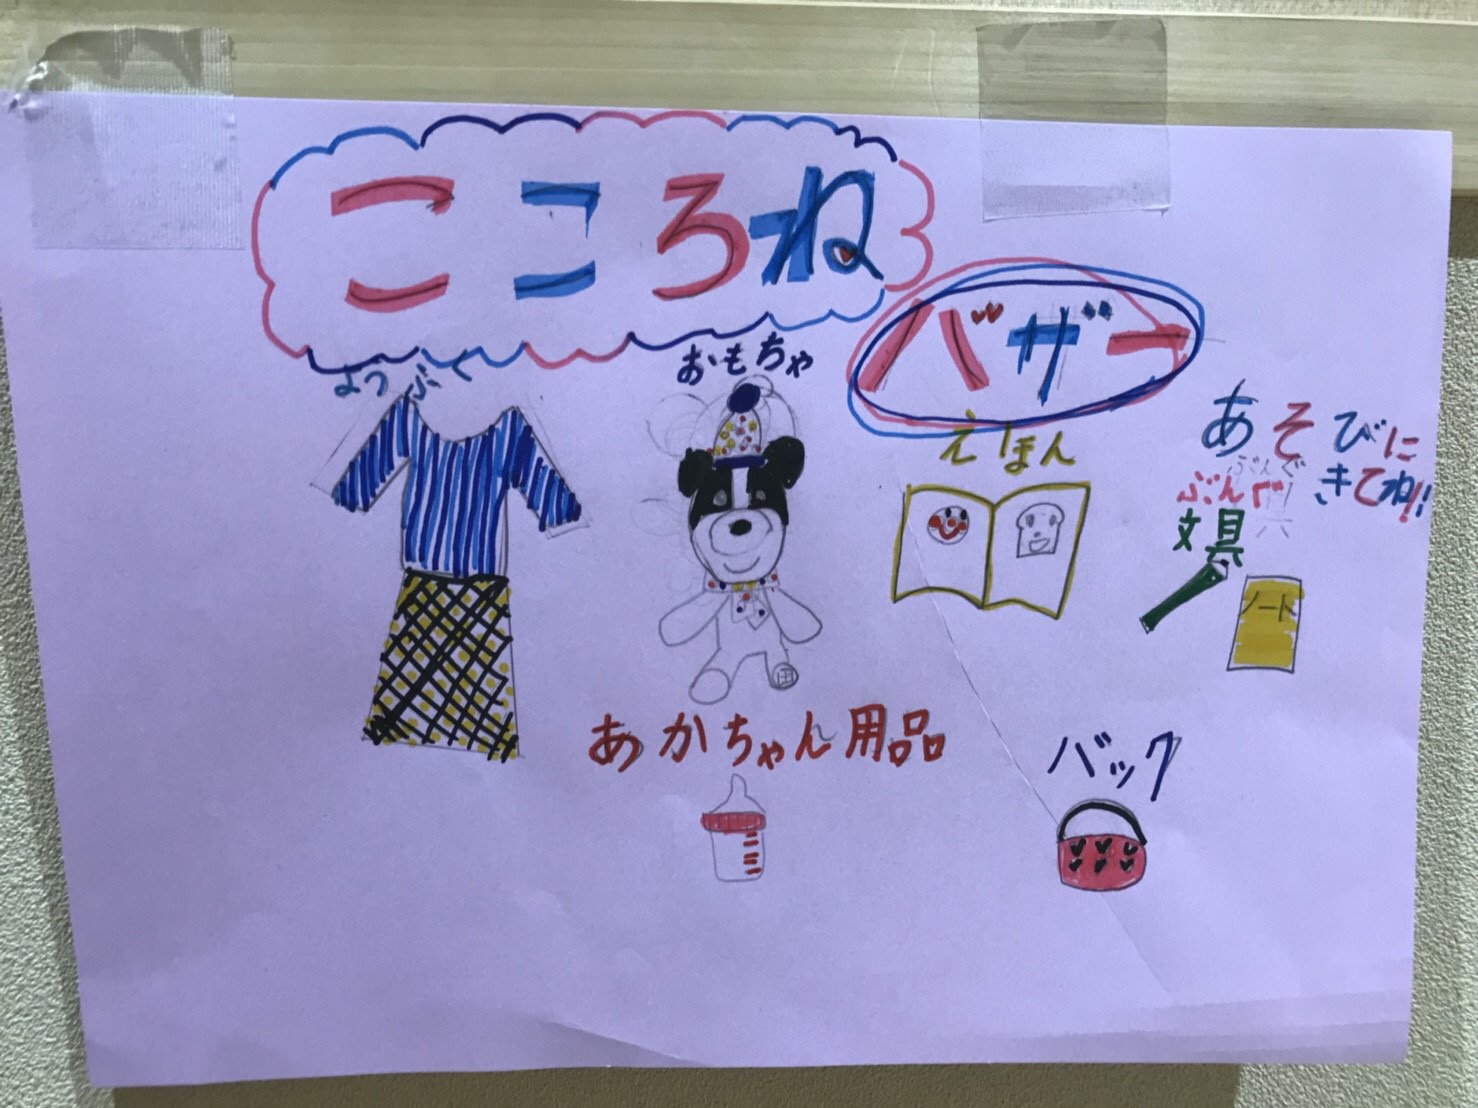 こころね
バザー
ようふく
おもちゃ
えほん
あそびに
きてね!!
ぶんぐ
文具
ノート
あかちゃん用品
バック